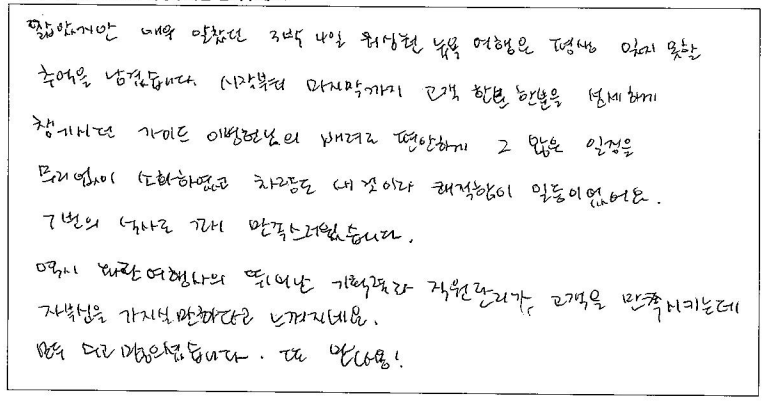 짧았지만 매우 알찼던 3박 4일 워싱턴 뉴욕 여행은 평생 잊지 못할
추억을 남겼습니다. 시작부터 마지막까지 고객 한분 한분을 섬세하게
챙기시던 가이드 님의 배려로 편안하게 그 많은 일정을
무리없이 소화하였고 차량도 새것이라 쾌적함이 일등이었어요.
7번의 식사도 꽤 만족스러웠습니다.
역시 여행사의 뛰어난 기획력과 직원관리가, 고객을 만족시키는데
자부심을 가지실만하다고 느껴지네요.
모두 수고 많으셨습니다. 또 만나용!